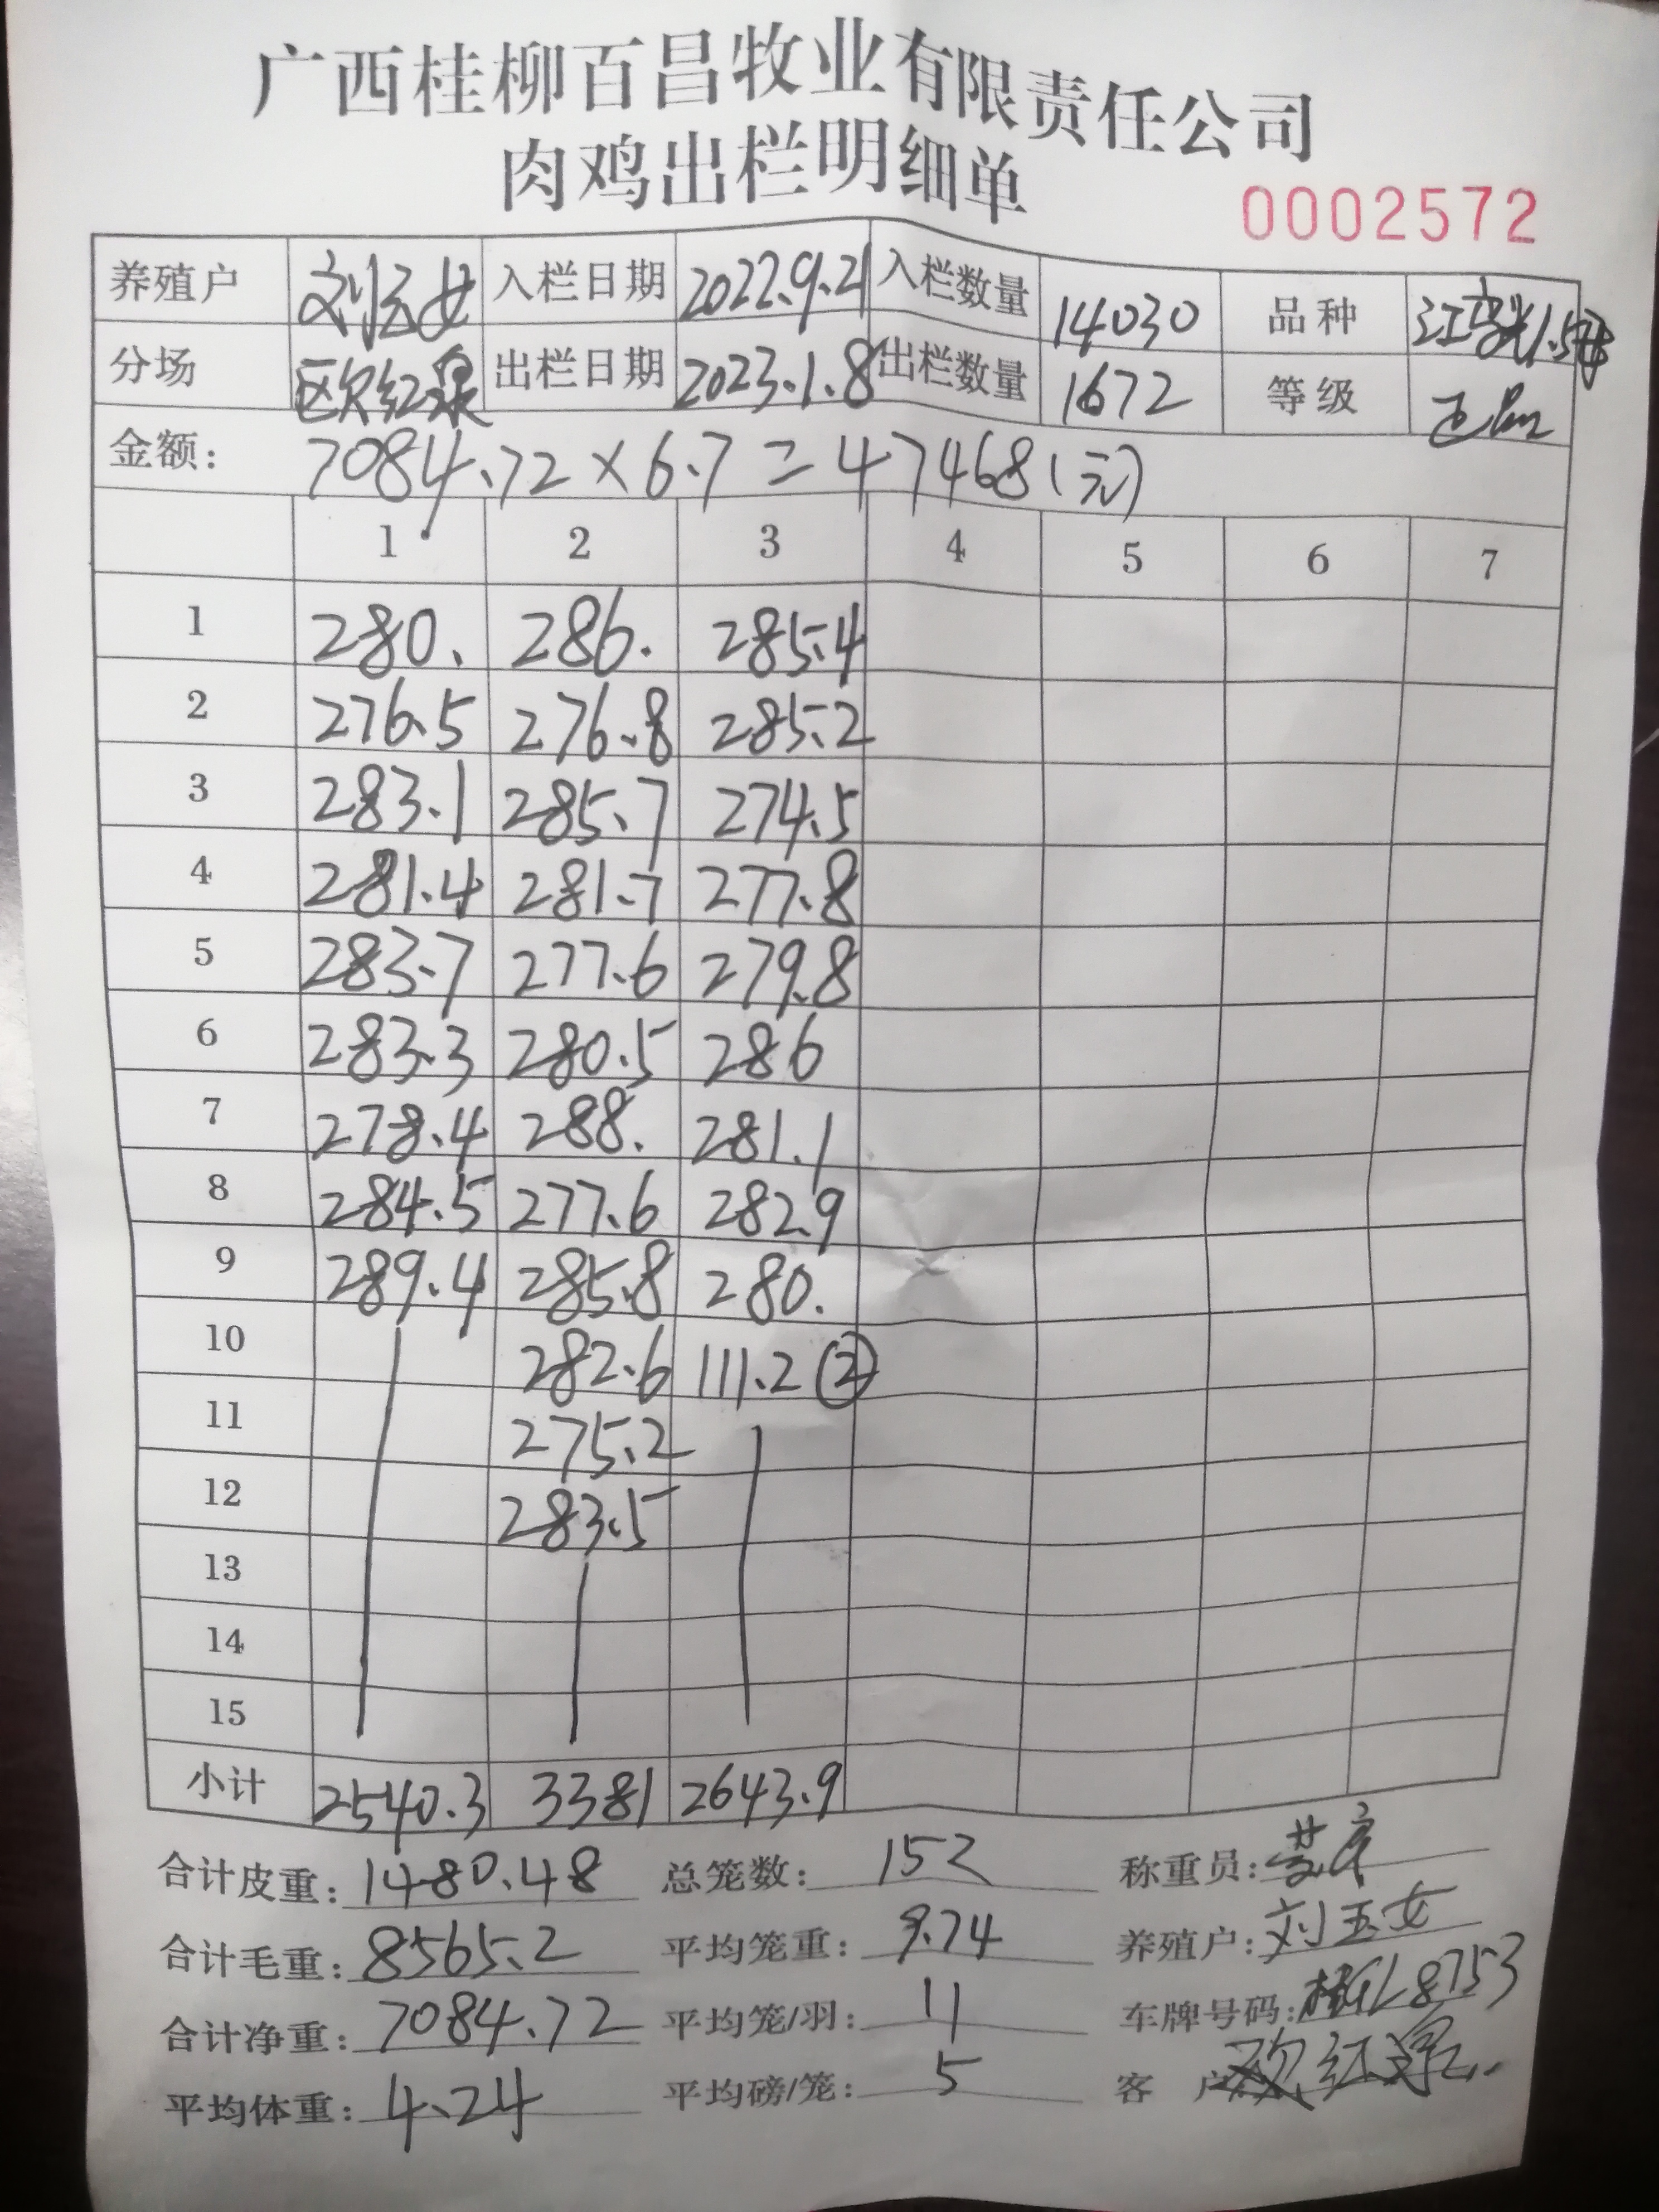 广西桂柳百昌牧业有限责任公司
肉鸡出栏明细单
0002572
养殖户 刘玉女 入栏日期 2022.9.21 入栏数量 14030 品种
分场 欧红泉 出栏日期 2023.1.8 出栏数量 1672 等级 正品
金额: 7084.72×6.7=47468(元)
1 2 3 4 5 6 7
1 280. 286. 285.4
2 276.5 276.8 285.2
3 283.1 285.7 274.5
4 281.4 281.7 277.8
5 283.7 277.6 279.8
6 283.3 280.5 286
7 278.4 288. 281.1
8 284.5 277.6 282.9
9 289.4 285.8 280.
10 282.6 111.2 ②
11 275.2
12 283.5
13
14
15
小计 2540.3 3381 2643.9
合计皮重: 1480.48 总笼数: 152 称重员:
合计毛重: 8565.2 平均笼重: 9.74 养殖户: 刘玉女
合计净重: 7084.72 平均笼/羽: 11 车牌号码: 桂L8753
平均体重: 4.24 平均磅/笼: 5 客户 欧红泉